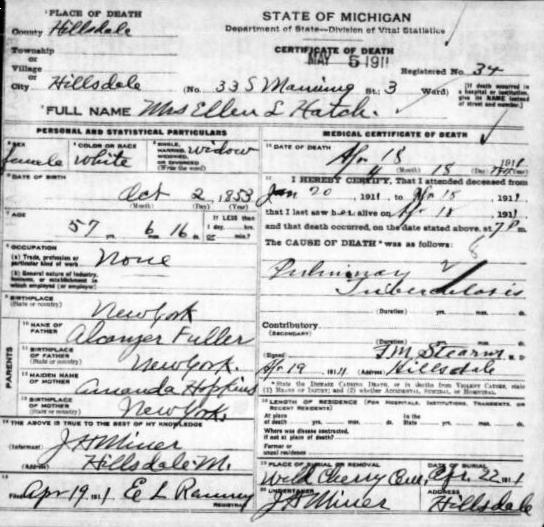 PLACE OF DEATH
County Hillsdale
Township
or
Village
or
City Hillsdale (No. 33 S Manning St. 3 Ward)
STATE OF MICHIGAN
Department of State—Division of Vital Statistics
CERTIFICATE OF DEATH
MAY 5 1911
Registered No. 34
[If death occurred in a hospital or institution, give its NAME instead of street and number.]
FULL NAME Mrs Ellen L Hatch.
PERSONAL AND STATISTICAL PARTICULARS
SEX
female
COLOR OR RACE
White
SINGLE, MARRIED, WIDOWED, OR DIVORCED
(Write the word)
widow
DATE OF BIRTH
Oct 2, 1853
(Month) (Day) (Year)
AGE
57 6 16
If LESS than
1 day, hrs.
or min.?
OCCUPATION
(a) Trade, profession or
particular kind of work
None
(b) General nature of industry,
business, or establishment in
which employed (or employer)
BIRTHPLACE
(State or country)
New York
PARENTS
NAME OF
FATHER
Alconzer Fuller
BIRTHPLACE
OF FATHER
(State or country)
New York.
MAIDEN NAME
OF MOTHER
Amanda Hopkins
BIRTHPLACE
OF MOTHER
(State or country)
New York.
THE ABOVE IS TRUE TO THE BEST OF MY KNOWLEDGE
(Informant) J H Miner
(Address) Hillsdale M.
Filed Apr 19 1911 E L Ranney
REGISTRAR
MEDICAL CERTIFICATE OF DEATH
DATE OF DEATH
Apr 18
1911
(Month) (Day) (Year)
I HEREBY CERTIFY, That I attended deceased from
Jan 20 1911 to Apr 18 1911
that I last saw her alive on Apr 18 1911
and that death occurred, on the date stated above, at 7 P m.
The CAUSE OF DEATH* was as follows:
Pulminary
Tuberculosis
(Duration) yrs. mos. ds.
Contributory
(Secondary)
(Duration) yrs. mos. ds.
Signed J M Stearns M. D.
Apr 19 1911 (Address) Hillsdale
*State the DISEASE CAUSING DEATH, or in deaths from VIOLENT CAUSES, state
(1) MEANS OF INJURY; and (2) whether ACCIDENTAL, SUICIDAL, or HOMICIDAL.
LENGTH OF RESIDENCE (FOR HOSPITALS, INSTITUTIONS, TRANSIENTS, OR
RECENT RESIDENTS)
At place In the
of death yrs. mos. ds. State yrs. mos. ds.
Where was disease contracted,
if not at place of death?
Former or
usual residence
PLACE OF BURIAL OR REMOVAL
Wild Cherry
DATE OF BURIAL
Apr. 22 1911
UNDERTAKER
J H Miner
ADDRESS
Hillsdale